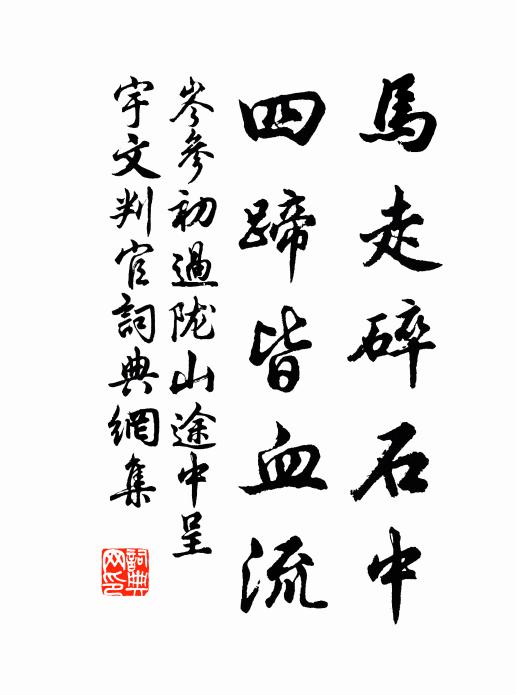 馬走碎石中
四蹄皆血流
岑參初過陇山途中呈
宇文判官詞典網集
詞典網印